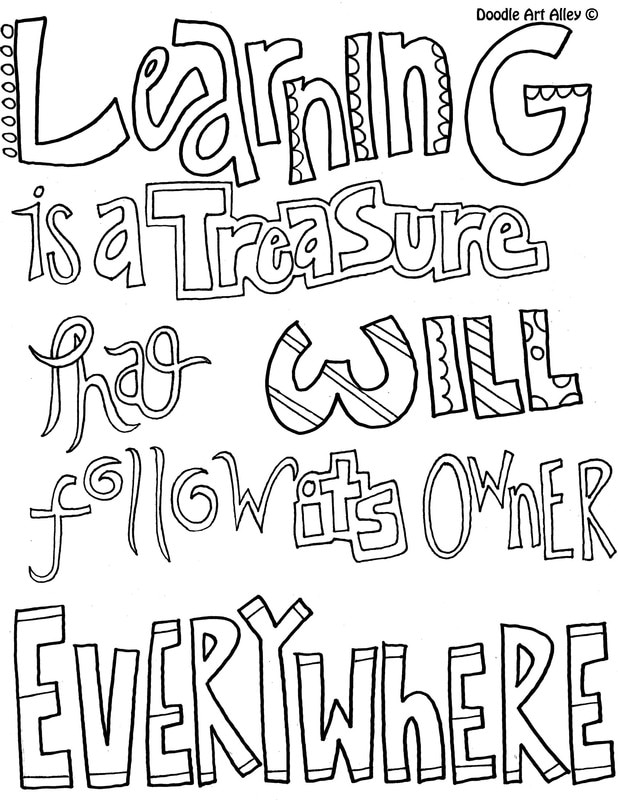 Doodle Art Alley ©
LearninG
is a Treasure
that WILL
follow its OWnER
EVERYWhERE